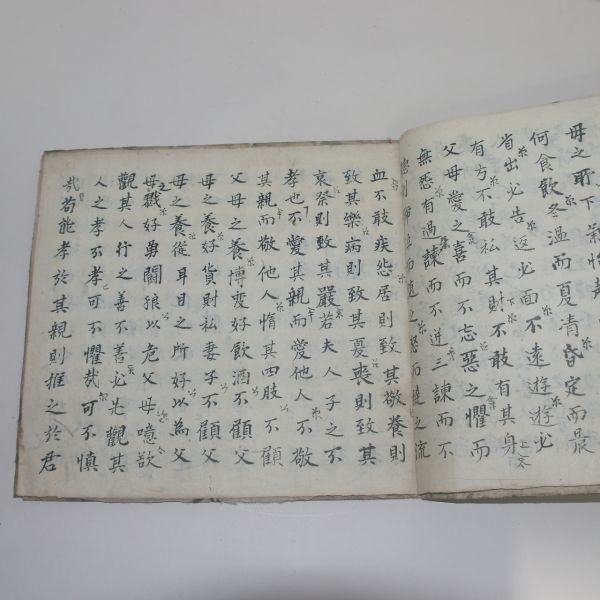 毋之所下氣怡
何食飲冬溫而夏凊昏定而晨
省出必告返必面不遠遊遊必
有方不敢私其財不敢有其身
父母愛之喜而不忘惡之懼而
無怨有過諫而不逆三諫而不
聽則號泣而隨之怒而撻之流
血不敢疾怨居則致其敬養則
致其樂病則致其憂喪則致其
哀祭則致其嚴若夫人子之不
孝也不愛其親而愛他人不敬
其親而敬他人惰其四肢不顧
父母之養博奕好飲酒不顧父
母之養好貨財私妻子不顧父
母之養從耳目之所好以為父
母之戮好勇鬪狠以危父母噫欲
觀其人行之善不善必先觀其
人之孝不孝可不懼哉可不慎
哉苟能孝於其親則推之於君